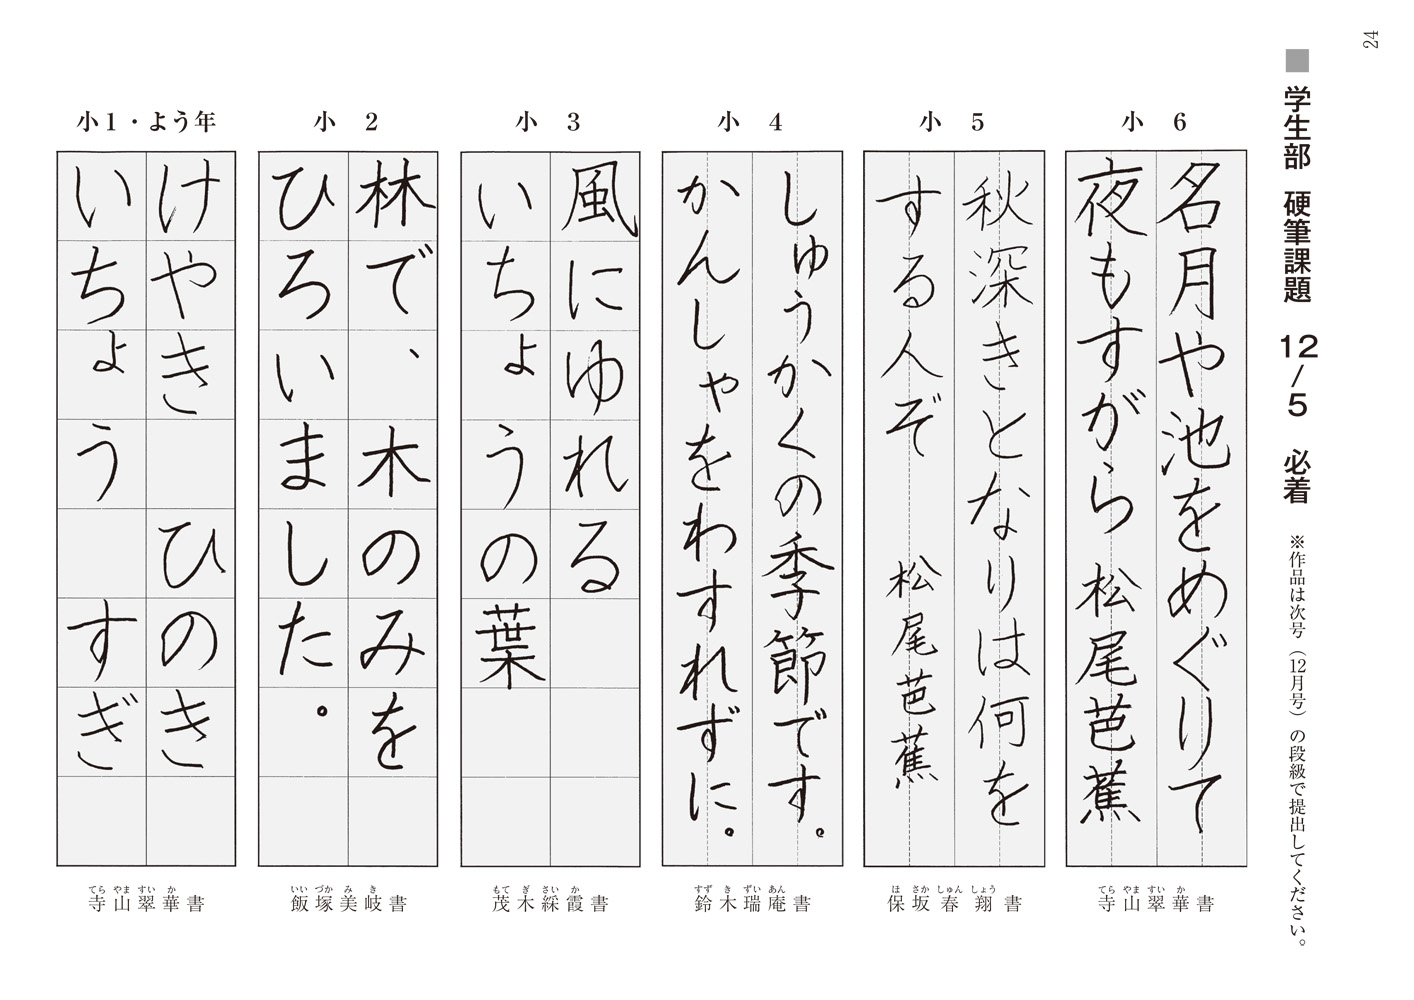 24
■ 学生部 硬筆課題 12/5 必着 ※作品は次号（12月号）の段級で提出してください。
小 6
名月や池をめぐりて
夜もすがら 松尾芭蕉
寺山翠華書
てら やま すい か
小 5
秋深きとなりは何を
する人ぞ 松尾芭蕉
保坂春翔書
ほ さか しゅん しょう
小 4
しゅうかくの季節です。
かんしゃをわすれずに。
鈴木瑞庵書
すず き ずい あん
小 3
風にゆれる
いちょうの葉
茂木綵霞書
もて ぎ さい か
小 2
林で、木のみを
ひろいました。
飯塚美岐書
いい づか み き
小1・よう年
けやき ひのき
いちょう すぎ
寺山翠華書
てら やま すい か